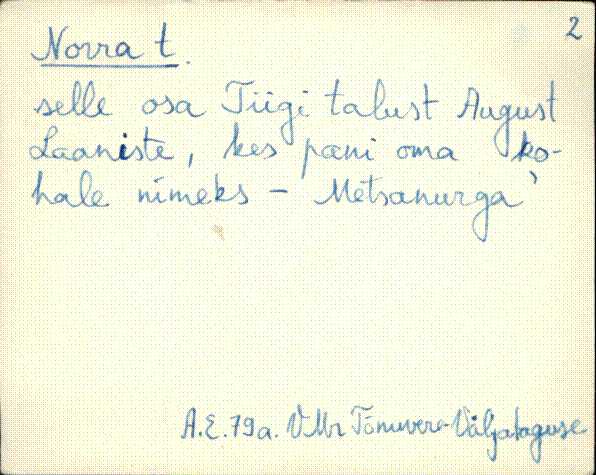 2
Norra t.
selle osa Tiigi talust August
Laaniste, kes pani oma ko-
hale nimeks - Metsanurga`
A.E. 79a. VMr Tõnuvere-Väljataguse